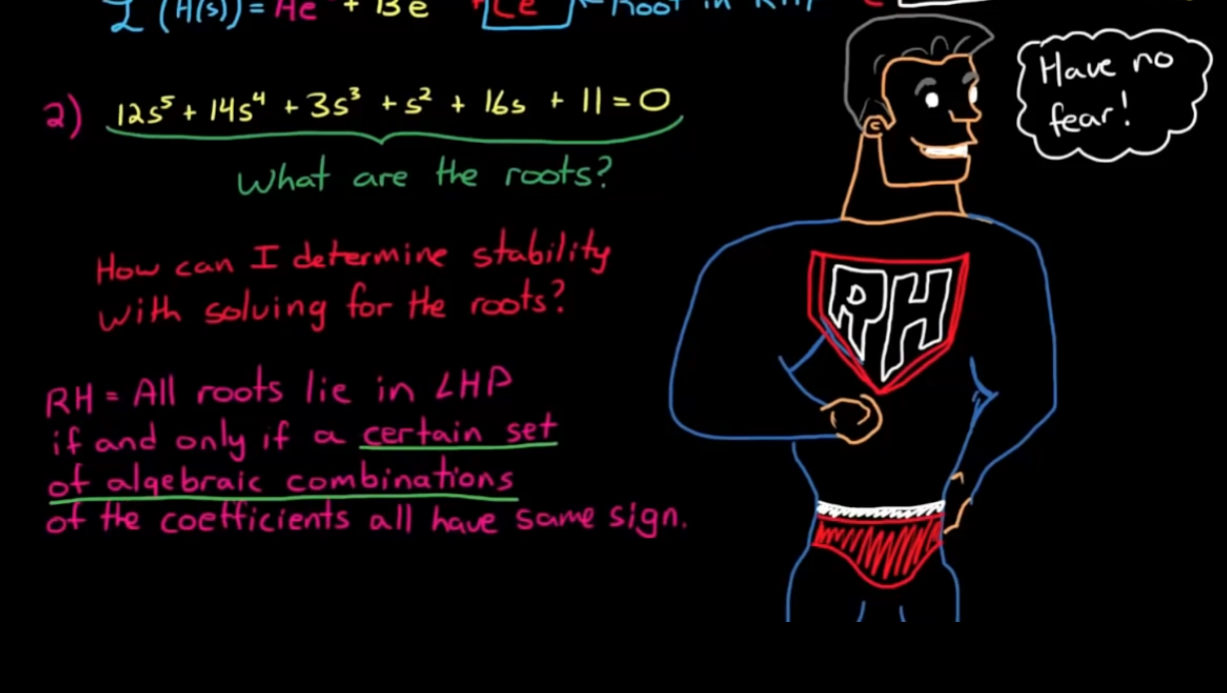 ℒ(H(s)) = Ae + Be + Ce ← Root in RHP
2) 12s⁵ + 14s⁴ + 3s³ + s² + 16s + 11 = 0
What are the roots?
How can I determine stability
with solving for the roots?
RH = All roots lie in LHP
if and only if a certain set
of algebraic combinations
of the coefficients all have same sign.
Have no
fear!
RH